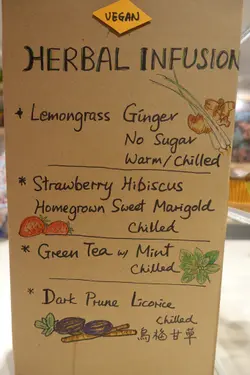 VEGAN
HERBAL INFUSION
* Lemongrass Ginger
No Sugar
Warm/Chilled
* Strawberry Hibiscus
Homegrown Sweet Marigold
Chilled
* Green Tea w/ Mint
Chilled
* Dark Prune Licorice
Chilled
烏梅甘草